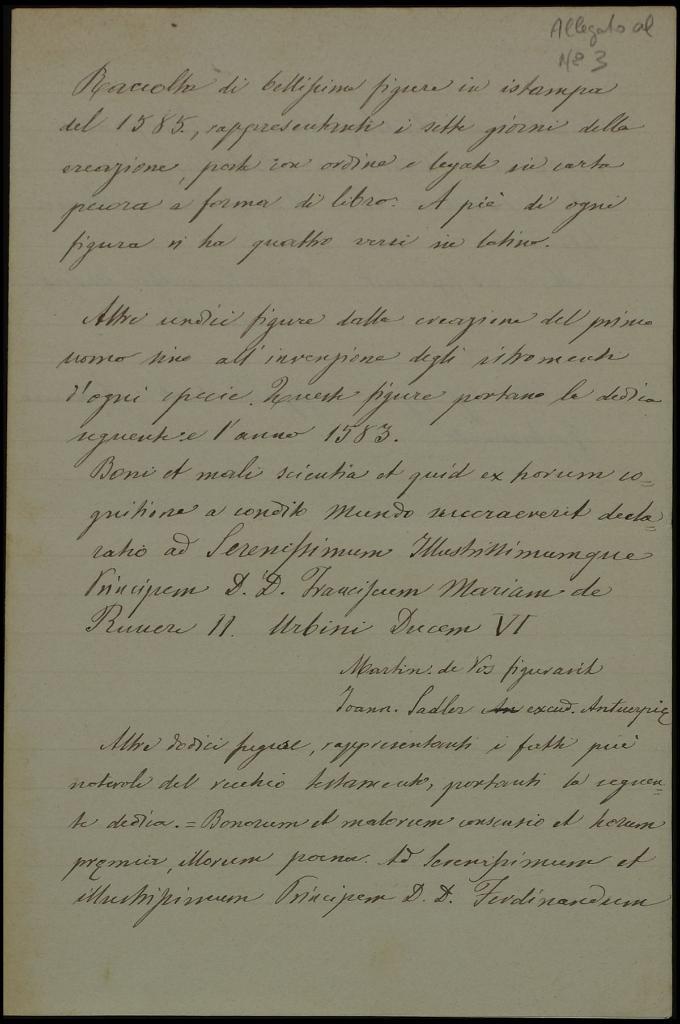 Allegato al
N.º 3
Raccolta di bellissime figure in istampa
del 1585, rappresentanti i sette giorni della
creazione, poste con ordine e legate in carta
pecora a forma di libro. A piè di ogni
figura vi ha quattro versi in latino.
Altre undici figure dalla creazione del primo
uomo sino all'invenzione degli istromenti
d'ogni specie. Queste figure portano la dedica
seguente e l'anno 1583.
Boni et mali scientia et quid ex horum co=
gnitione a condito Mundo succraeverit decla=
ratio ad Serenissimum Illustrissimumque
Principem D. D. Franciscum Mariam de
Ruuere II. Urbini Ducem VI
Martin. de Vos figuravit
Joann. Sadler An excud. Antuerpię
Altre dodici figure, rappresentanti i fatti più
notevoli del vecchio testamento, portanti la seguen=
te dedica. = Bonorum et malorum consensio et horum
pręmia, illorum poena. Ad Serenissimum et
illustrissimum Principem D. D. Ferdinandum